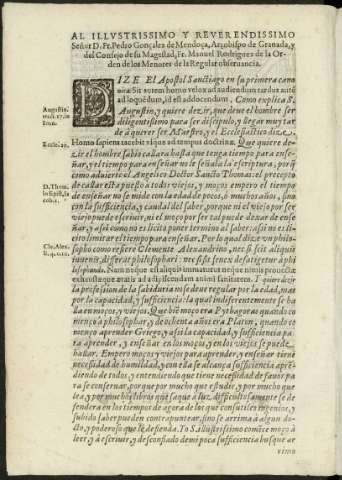 AL ILLVSTRISSIMO Y REVERENDISSIMO
Señor D. Fr. Pedro Gonçalez de Mendoça, Arçobispo de Granada, y
del Consejo de su Magestad, Fr. Manuel Rodriguez de la Or-
den de los Menores de la Regular obseruancia.
DIZE El Apostol Sanctiago en su primera cano
nica: Sit autem homo velox ad audiendum tardus autē
ad loquēdum, id est ad docendum. Como explica S.
Augustin, y quiere dezir, que deue el hombre ser
diligentissimo para ser discipulo, y llegar muy tar
de à querer ser Maestro, y el Ecclesiastico dize,
Homo sapiens tacebit vsque ad tempus doctrinæ. Que quiere de-
zir el hombre sabio callara hasta que tenga tiempo para ense-
ñar, y el tiempo para enseñar no le señala la escriptura, porq̃
como aduierte el Angelico Doctor Sancto Thomas: el precepto
de callar està puesto à todos viejos, y moços empero el tiempo
de enseñar no se mide con la edad de pocos, ò muchos años, sino
con la sufficiencia, y caudal del saber, porque ni el viejo por ser
viejo puede escriuir, ni el moço por ser tal puede dexar de ense
ñar, y assi como no es licito poner termino al saber: assi no es li-
cito limitar el tiempo para enseñar. Por lo qual dize vn philo-
sopho como refiere Clemente Alexandrino, nec si sit aliquis
iuuenis, differat philosophari: nec si sit senex defatigetur à phi
losophando. Nam neque est aliquis immaturus neque nimis prouectæ
existens ætatis ad
la profession de la sabiduria no se deue regular por la edad, mas
por la capacidad, y sufficiencia: la qual indiferentemente se ha
lla en moços, y viejos. Que biē moço era Pythagoras quando co
menço à philosophar, y de ochenta años era Platon, quando co
menço aprender Griego, y assi la capacidad, y sufficiencia pa
ra aprender, y enseñar en los moços, y en los viejos se puede
hallar. Empero moços y viejos para aprender, y enseñar tienē
necessidad de humildad, y con ella se alcança sufficiencia apren
diendo de todos, y entendiendo que tiene necessidad de fauor pa
ra se conseruar, porque por mucho que estudie, y por mucho que
lea, y por muchos libros que saque à luz, difficultosamente se de
fendera en los tiempos de agora de los que con sutiles ingenios, y
subido saber pueden contrapuntear, sino se arrima à algun do-
cto, y poderoso que le defienda. Yo S. Illustrissimo comēce moço à
leer, y à escriuir, y desconfiado de mi poca sufficiencia busque ar
rimo
Augustin.
Ioan.
Eccle. 20.
D. Thom.
Cle. Alex.